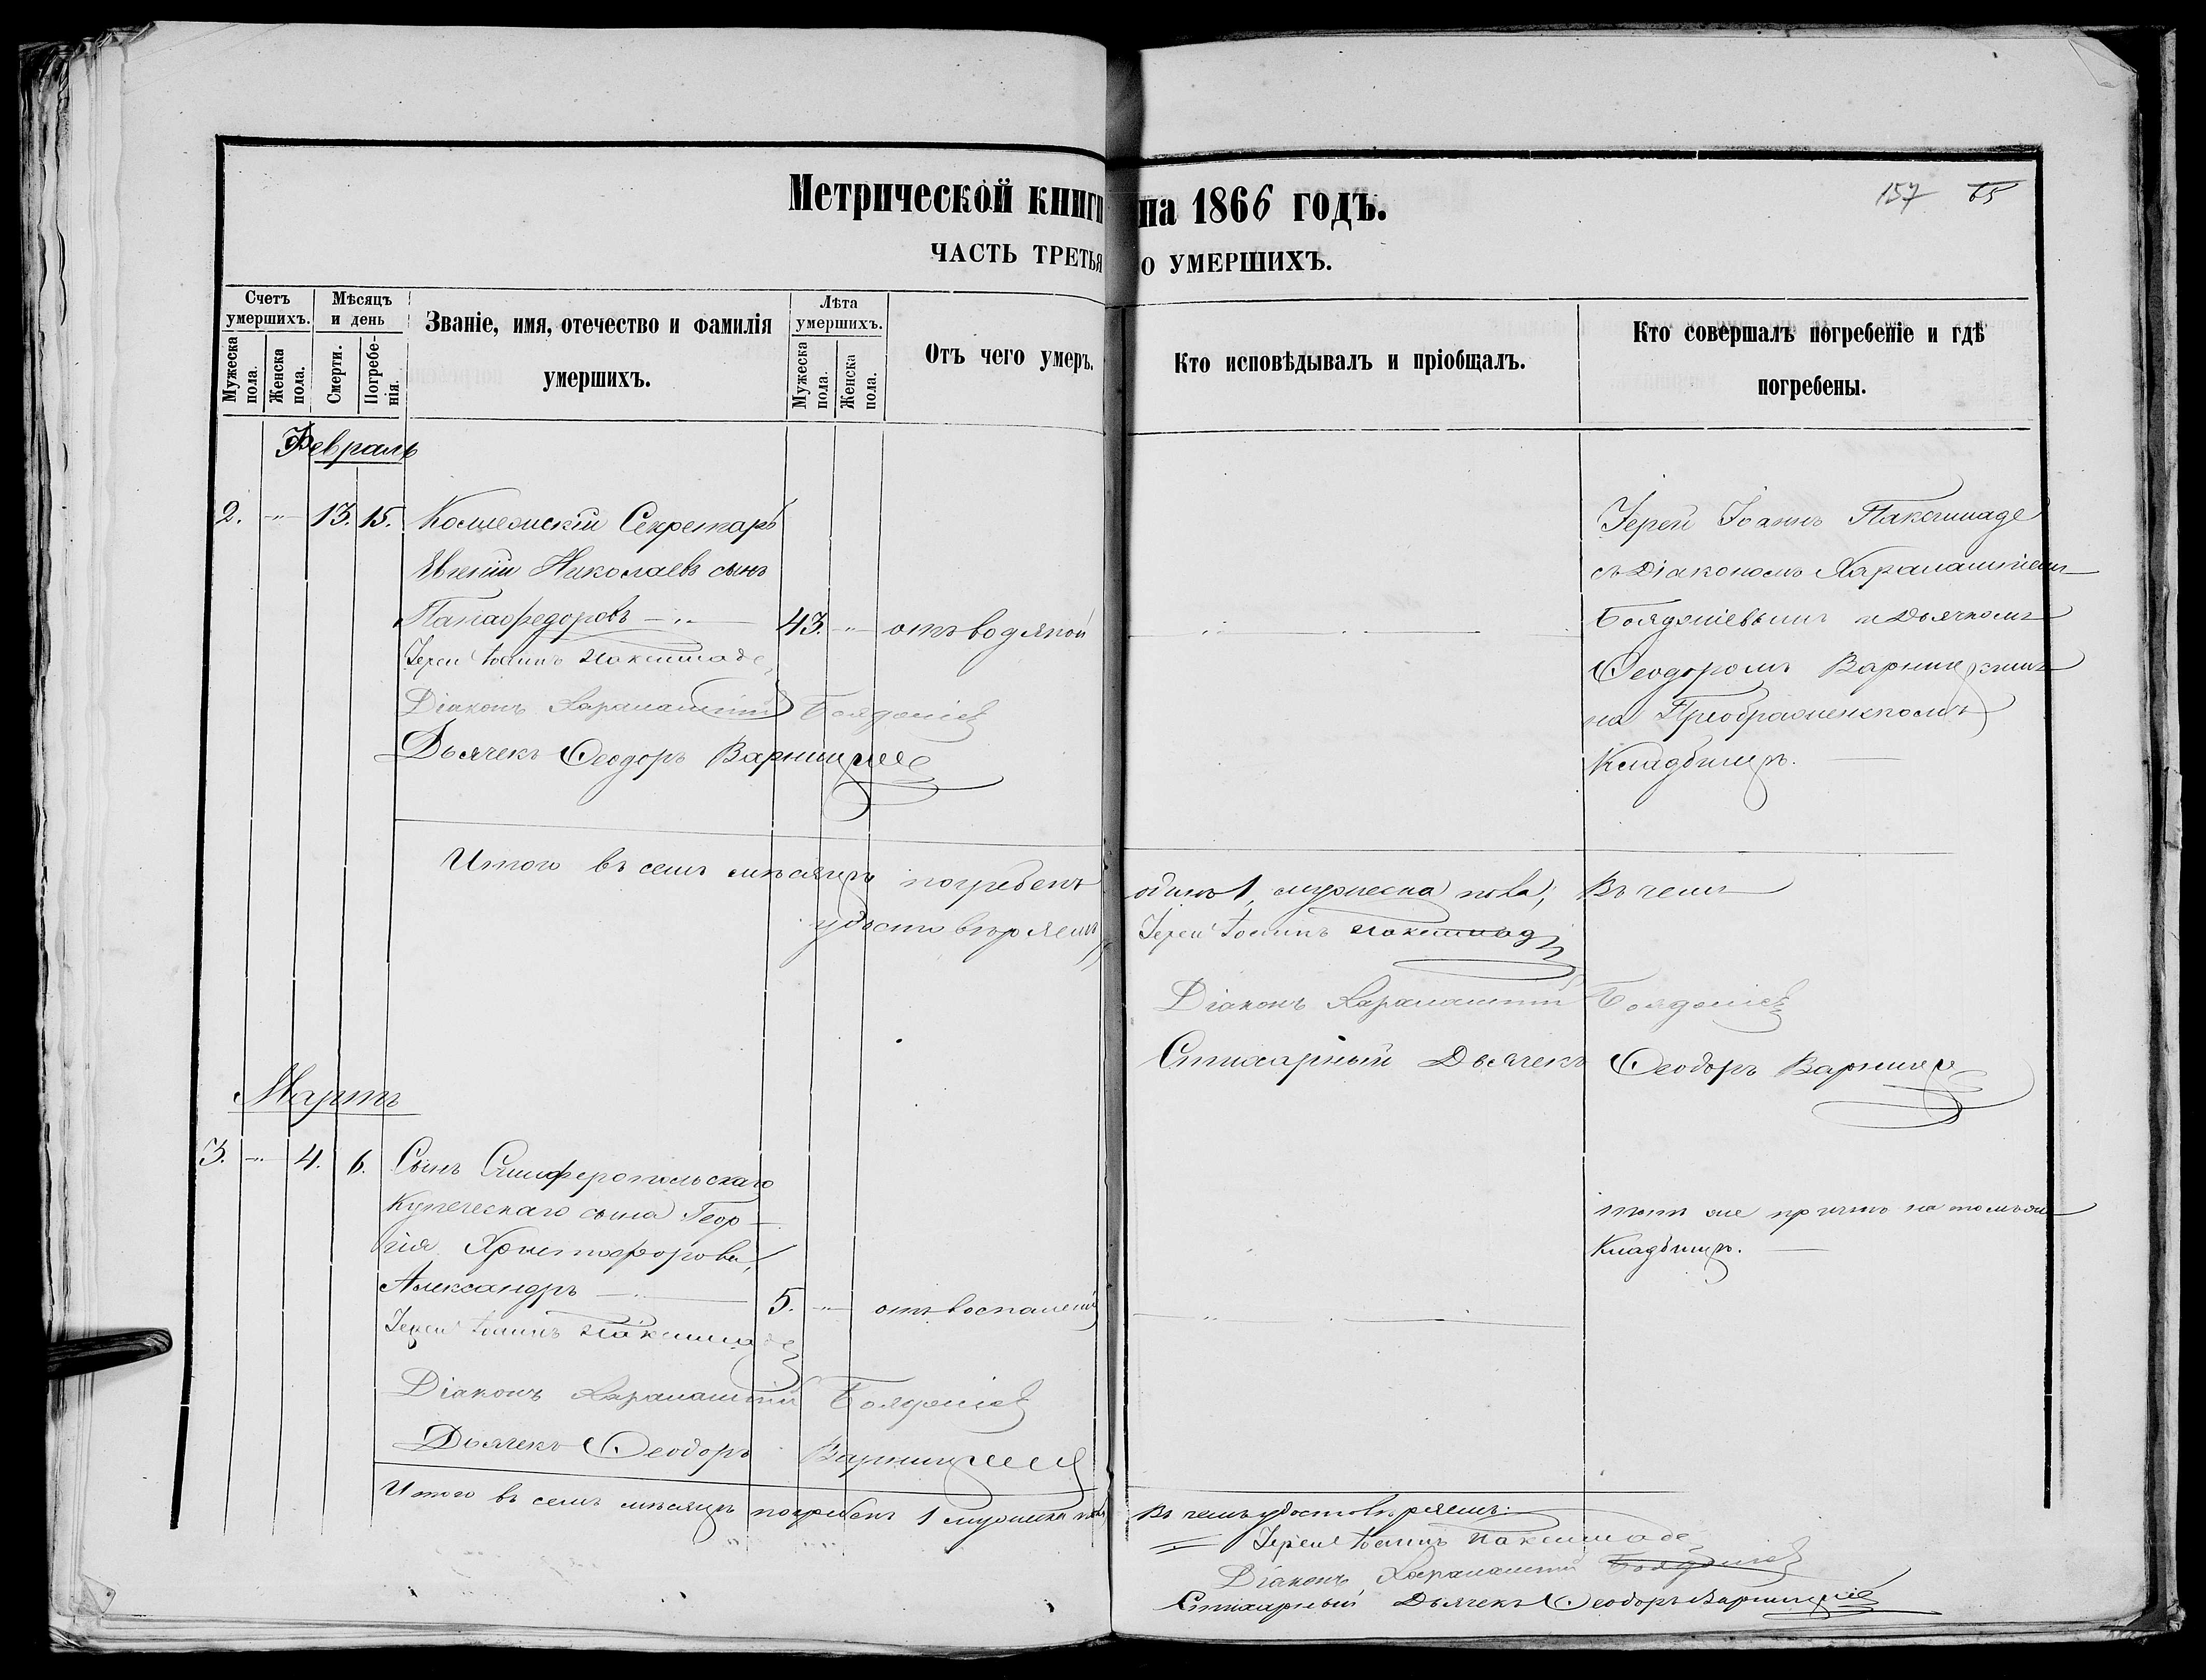 Метрической книги на 1866 годъ.
157 65
ЧАСТЬ ТРЕТЬЯ О УМЕРШИХЪ.
Счетъ умершихъ.
Мужеска пола.
Женска пола.
Мѣсяцъ и день
Смерти.
Погребенія.
Званіе, имя, отечество и фамилія умершихъ.
Лѣта умершихъ.
Мужеска пола.
Женска пола.
Отъ чего умеръ.
Кто исповѣдывалъ и пріобщалъ.
Кто совершалъ погребеніе и гдѣ погребены.
Февраль
2. -„- 13. 15. Коллежскій Секретарь
Евгеній Николаевъ сынъ
Папафедоровъ -„- 43. -„- отъ водяной
Іерей Іоаннъ
Діаконъ Харалампій
Дьячекъ Ѳеодоръ Варницкій
Іерей Іоаннъ
съ Діакономъ Харалампіемъ
и Дьячкомъ
Ѳеодоромъ Варницкимъ
на Преображенскомъ
Кладбищѣ.
Итого въ семъ мѣсяцѣ погребенъ одинъ 1, мужеска пола; Въ чемъ
удостовѣряемъ
Іерей Іоаннъ
Діаконъ Харалампій
Стихарный Дьячекъ Ѳеодоръ Варницкій
Мартъ
3. -„- 4. 6. Сынъ Симферопольскаго
Купеческаго сына Геор-
гія Христофорова,
Александръ 5. -„- отъ воспаленія
тотъ же причтъ на томъ же
Кладбищѣ.
Іерей Іоаннъ
Діаконъ Харалампій
Дьячекъ Ѳеодоръ Варницкій
Итого въ семъ мѣсяцѣ погребенъ 1 мужеска пола, Въ чемъ удостовѣряемъ:
Іерей Іоаннъ
Діаконъ Харалампій
Стихарный Дьячекъ Ѳеодоръ Варницкій